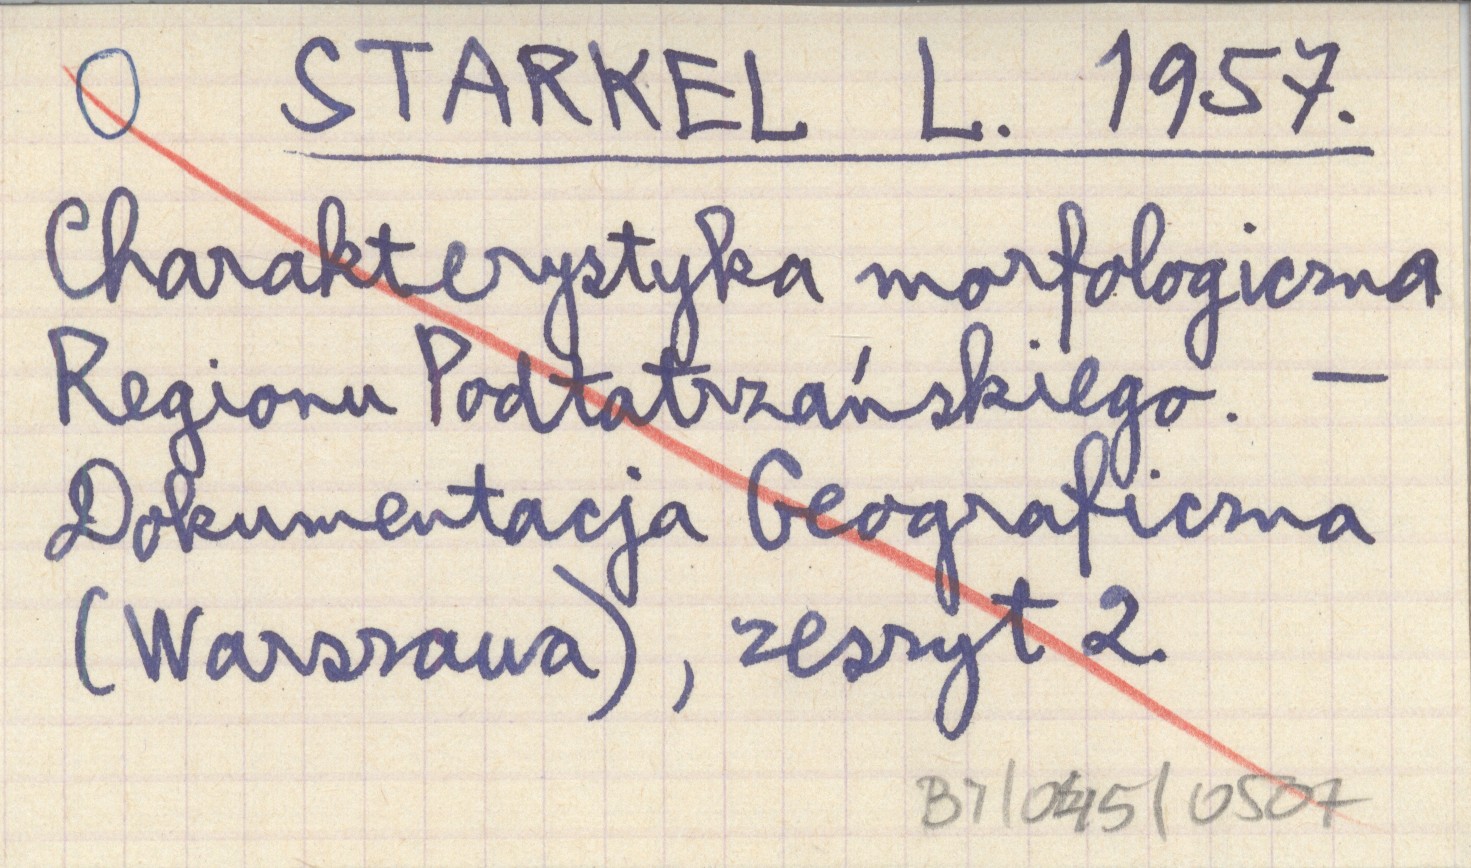 O STARKEL L. 1957.
Charakterystyka morfologiczna
Regionu Podtatrzańskiego. —
Dokumentacja Geograficzna
(Warszawa), zeszyt 2.
B7/045/0507